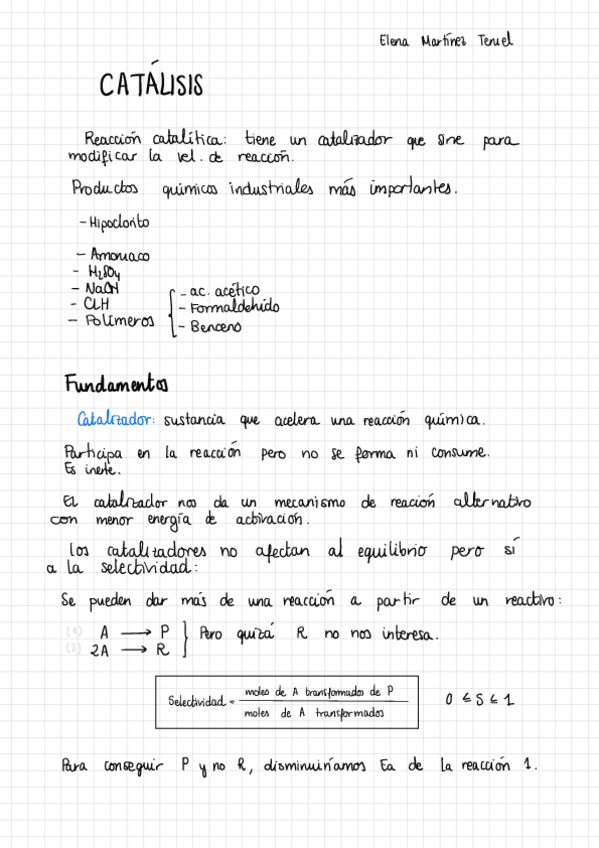 Elena Martínez Teruel
CATÁLISIS
Reacción catalítica: tiene un catalizador que sirve para
modificar la vel. de reacción.
Productos químicos industriales más importantes.
- Hipoclorito
- Amoniaco
- H₂SO₄
- NaOH
- CLH
- Polímeros
- ac. acético
- Formaldehido
- Benceno
Fundamentos
Catalizador: sustancia que acelera una reacción química.
Participa en la reacción pero no se forma ni consume.
Es inerte.
El catalizador nos da un mecanismo de reacion alternativo
con menor energía de activación.
Los catalizadores no afectan al equilibrio pero sí
a la selectividad:
Se pueden dar más de una reacción a partir de un reactivo:
(1) A → P } Pero quizá R no nos interesa.
(2) 2A → R
Selectividad = moles de A transformados de P
moles de A transformados
0 ≤ S ≤ 1
Para conseguir P y no R, disminuiríamos Ea de la reacción 1.